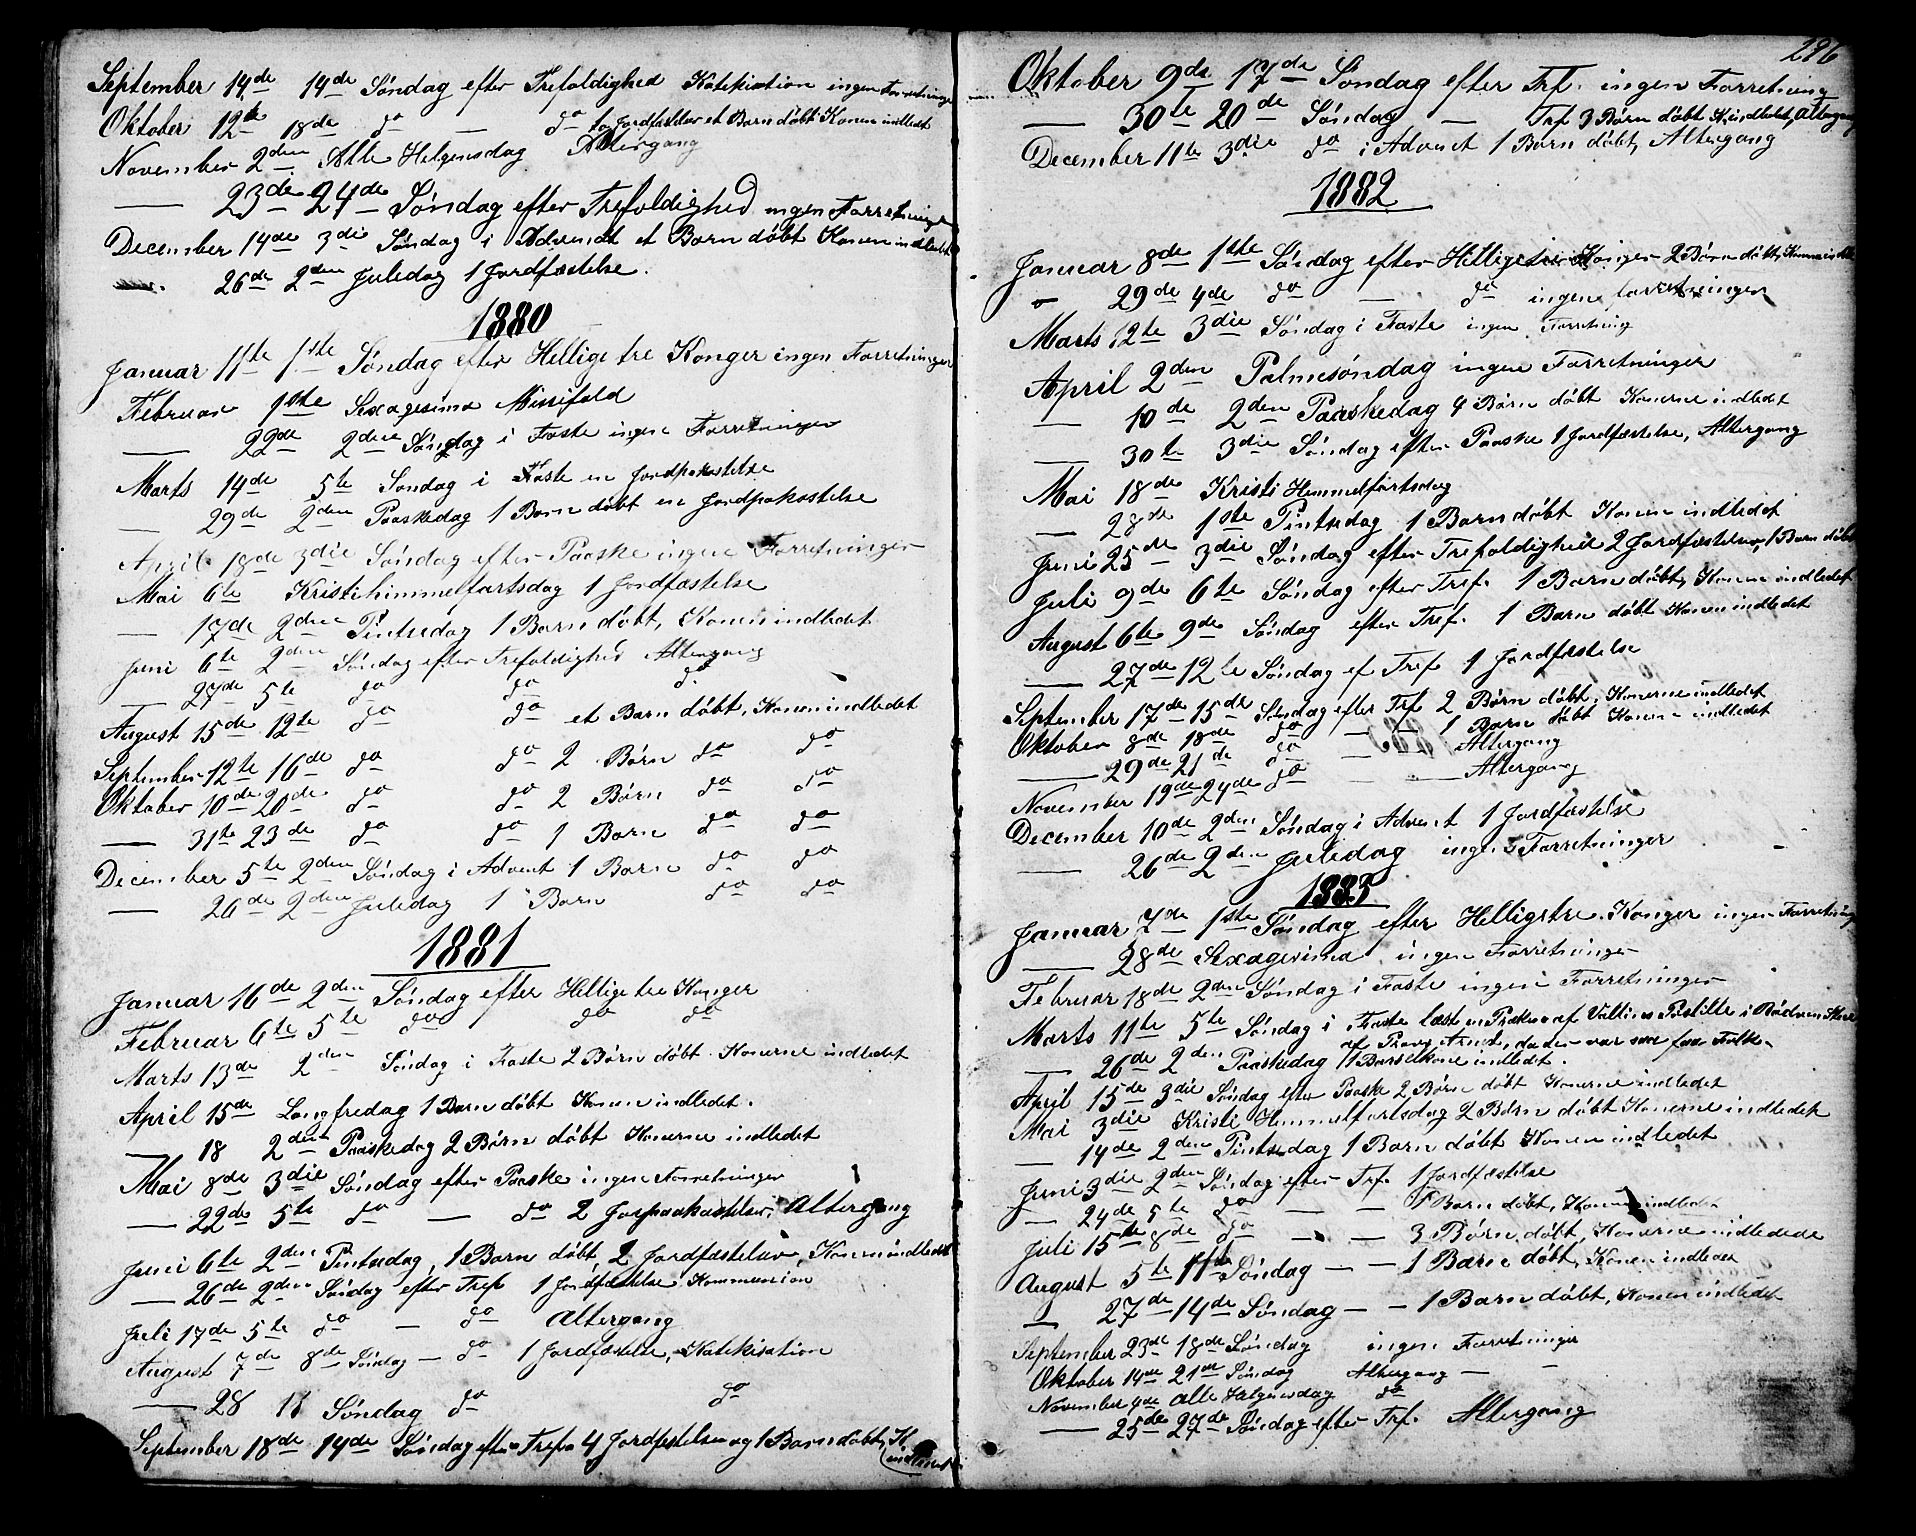 September 14de 14de Søndag efter Trefoldighed Katekisation ingen Forretninger
Oktober 12te 18de do — do to Jordfæstelser et Barn døbt Konen indledt
November 2den Alle Helgensdag Altergang
— 23de 24de Søndag efter Trefoldighed ingen Forretninger
December 14de 3die Søndag i Advendt et Barn døbt Konen indledt
26de 2den Juledag 1 Jordfæstelse.
1880
Januar 11te 1ste Søndag efter Hellige tre Konger ingen Forretninger
Februar 1ste Sexagesima Missifald
— 22de 2den Søndag i Faste ingen Forretninger
Marts 14de 5te Søndag i Faste en Jordpakastelse
— 29de 2den Paaskedag 1 Barn døbt en Jordpakastelse
April 18de 3die Søndag efter Paaske ingen Forretninger
Mai 6te Kristihimmelfartsdag 1 Jordfæstelse
— 17de 2den Pintsedag 1 Barn døbt, Konen indledet
Juni 6te 2den Søndag efter Trefoldighed Altergang
27de 5te do do do
August 15de 12te do do et Barn døbt, Konen indledet
September 12te 16de do do 2 Børn do do
Oktober 10de 20de do do 2 Børn do do
— 31te 23de do do 1 Barn do do
December 5te 2den Søndag i Advent 1 Barn do do
— 26de 2den Juledag 1 Barn do do
1881
Januar 16de 2den Søndag efter Hellige tre Konger
Februar 6te 5te do do do
Marts 13de 2den Søndag i Faste 2 Børn døbt. Konerne indledet
April 15de Langfredag 1 Barn døbt Konen indledet.
— 18 2den Paaskedag 2 Børn døbt Konerne indledet
Mai 8de 3die Søndag efter Paaske ingen Forretninger
— 22de 5te do — do 2 Jorpaakastelser, Altergang
Juni 6te 2den Pintsedag, 1 Barn døbt, 2 Jordfæstelser, Konen indledet
— 26de 2den Søndag efter Tref 1 Jordfæstelse, Kommunion
Juli 17de 5te do — do Altergang
August 7de 8de Søndag — do 1 Jordfæstelse, Katekisation
— 28 11 Søndag do do
September 18de 14de Søndag efter Tref 4 Jordfæstelser og 1 Barn døbt, K.
indledet
296
Oktober 9de 17de Søndag efter Trf. ingen Forretning
— 30te 20de Søndag — Trf 3 Børn døbt K indledt, Altergang
December 11te 3die do i Advent 1 Barn døbt, Altergang
1882
Januar 8de 1ste Søndag efter Helligetre Konger 2 Børn døbt, Konerne indledt
" 29de 4de do — do ingen forretninger
Marts 12te 3die Søndag i Faste ingen Forretning
April 2den Palmesøndag ingen Forretninger
— 10de 2den Paaskedag 4 Børn døbt Konerne indledet
— 30te 3die Søndag efter Paaske 1 Jordfæstelse, Altergang
Mai 18de Kristi Himmelfartsdag
— 28de 1ste Pintsedag 1 Barn døbt Konen indledet
Juni 25de 3die Søndag efter Trefoldighed 2 Jordfæstelser, 1 Barn døbt
Juli 9de 6te Søndag efter Tref. 1 Barn døbt, Konen indledet
August 6te 9de Søndag efter Tref. 1 Barn døbt Konen indledet
— 27de 12te Søndag ef Tref 1 Jordfæstelse
September 17de 15de Søndag efter Trf 2 Børn døbt, Konerne indledet
Oktober 8de 18de do — 1 Barn døbt Konen indledet
— 29de 21de do — Altergang
November 19de 24de do — Altergang
December 10de 2den Søndag i Advent 1 Jordfæstelse
26de 2den Juledag ingen Forretninger
1883
Januar 7de 1ste Søndag efter Helligetre Konger ingen Forretning
— 28de Sexagesima ingen Forretninger
Februar 18de 2den Søndag i Faste ingen Forretninger
Marts 11te 5te Søndag i Faste læst en Præken af Vallins Postille i
af da der var saa faa Folk.
— 26de 2den Paaskedag 1 Barselkone indledet.
April 15de 3die Søndag efter Paaske 2 Børn døbt Konerne indledet
Mai 3die Kristi Himmelfartsdag 2 Børn døbt Konerne indledet
— 14de 2den Pintsedag 1 Barn døbt Konen indledet
Juni 3die 2den Søndag efter Trf. 1 Jordfæstelse
— 24de 5te do — — 1 Barn døbt, Konen indledet
Juli 15te 8de do — — 3 Børn døbt, Konerne indledede
August 5te 11te Søndag — — 1 Barn døbt, Konen indledet
— 27de 14de Søndag — — 1 Barn døbt, Konen indledet
September 23de 18de Søndag ingen Forretninger
Oktober 14de 21de Søndag Altergang —
November 4de Alle Helgensdag do
— 25de 27de Søndag efter Trf. Altergang